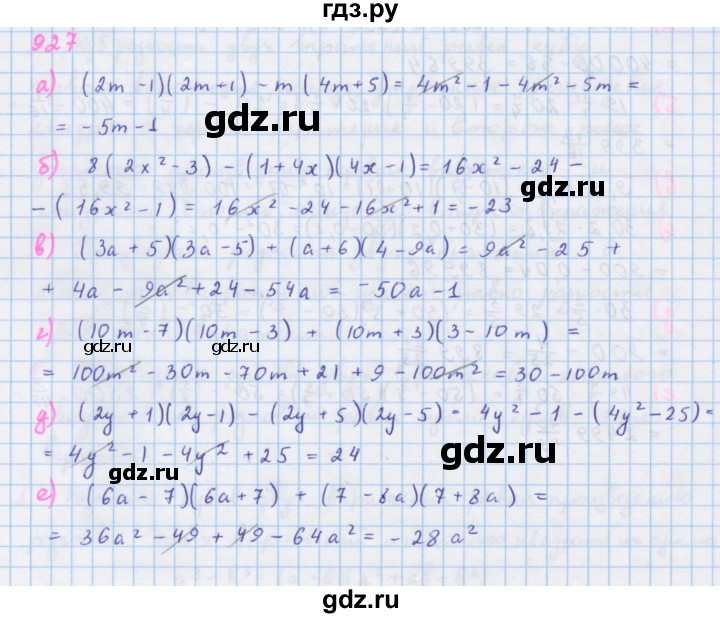 гдз.ру
927
а) (2m -1)(2m+1) - m (4m+5) = 4m² - 1 - 4m² - 5m =
gdz.ru
= - 5m - 1
б) 8(2x² - 3) - (1+4x)(4x -1) = 16x² - 24 -
gdz.ru
- (16x² - 1) = 16x² - 24 - 16x² + 1 = - 23
в) (3a + 5)(3a - 5) + (a + 6)(4 - 9a) = 9a² - 25 +
+ 4a - 9a² + 24 - 54a = - 50a - 1
г) (10m - 7)(10m - 3) + (10m + 3)(3 - 10m) =
gdz.ru gdz.ru
= 100m² - 30m - 70m + 21 + 9 - 100m² = 30 - 100m
д) (2y + 1)(2y - 1) - (2y + 5)(2y - 5) = 4y² - 1 - (4y² - 25) =
= 4y² - 1 - 4y² + 25 = 24
gdz.ru gdz.ru
е) (6a - 7)(6a + 7) + (7 - 8a)(7 + 8a) =
= 36a² - 49 + 49 - 64a² = - 28a²
gdz.ru